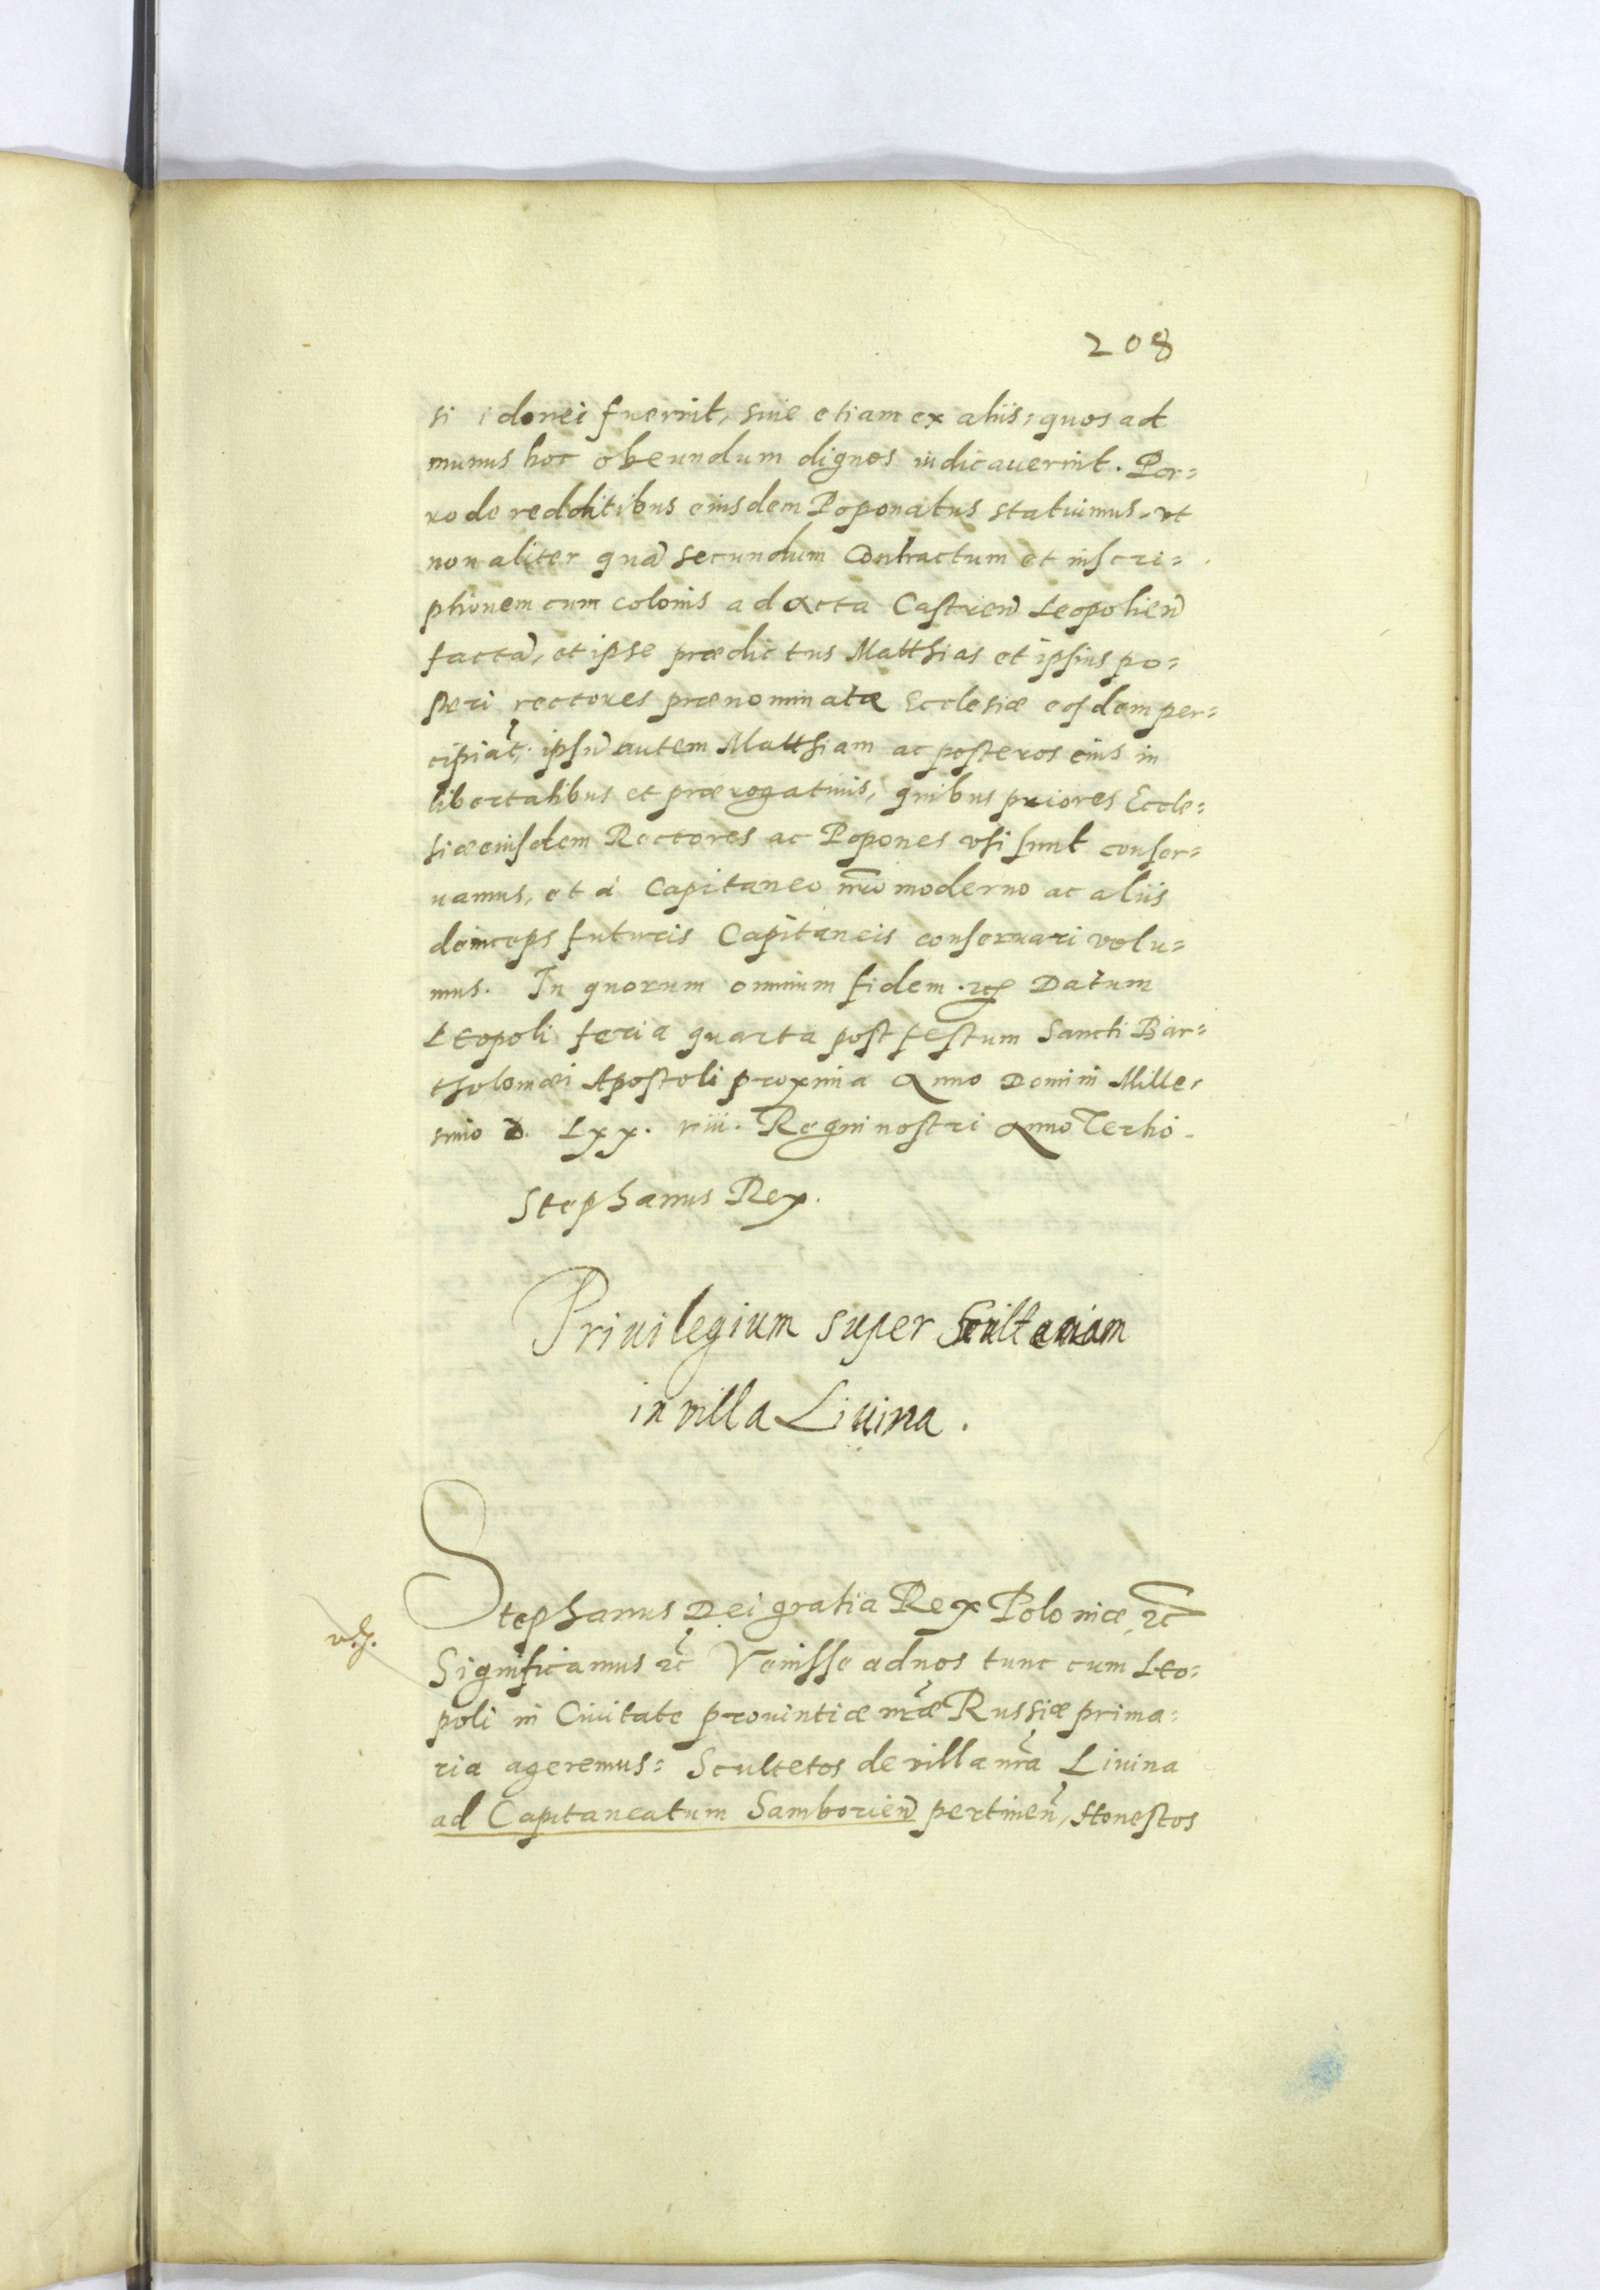 208
si idonei fuerint, siue etiam ex aliis, quos ad
munus hoc obeundum dignos iudicauerint. Por=
ro de redditibus eiusdem Poponatus statuimus, vt
non aliter quã secundum Contractum et inscri=
ptionem cum colonis ad acta Castreñ Leopolieñ
factã, et ipse prædictus Matthias et ipsius po=
steri rectores prænominatæ Ecclesiæ eosdem per=
cipiãt, ipsũ autem Matthiam ac posteros eius in
libertatibus et prærogatiuis, quibus priores Eccle=
siæ eiusdem Rectores ac Popones vsi sunt conser=
uamus, et à Capitaneo nr̃o moderno ac aliis
deinceps futuris Capitaneis conseruari volu=
mus. In quorum omnium fidem. etc̃ Datum
Leopoli feria quarta post festum Sancti Bar=
tholomæi Apostoli proxima Anno Domini Mille,
simo D. Lxx. viii. Regni nostri Anno Tertio.
Stephanus Rex.
Priuilegium super Scultetiam
in villa Liuina.
Stephanus Dei gratia Rex Poloniæ, etc̃
Significamus etc̃ Venisse ad nos tunc cum Leo=
poli in Ciuitate prouintiæ nr̃æ Russiæ prima=
ria ageremus: Scultetos de villa nr̃a Liuina
ad Capitaneatum Samborieñ pertineñ, Honestos